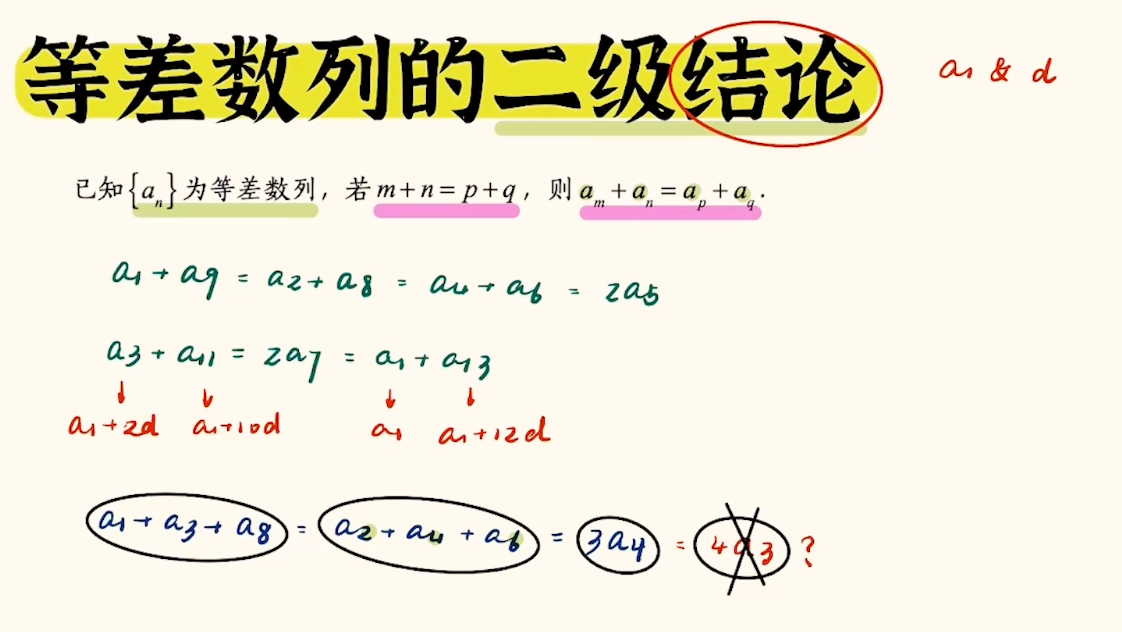 等差数列的二级结论
a₁ & d
已知{aₙ}为等差数列，若m+n=p+q，则aₘ+aₙ=aₚ+a_q.
a₁+a₉=a₂+a₈=a₄+a₆=2a₅
a₃+a₁₁=2a₇=a₁+a₁₃
a₁+2d a₁+10d a₁ a₁+12d
a₁+a₃+a₈=a₂+a₄+a₆=3a₄=4a₃?